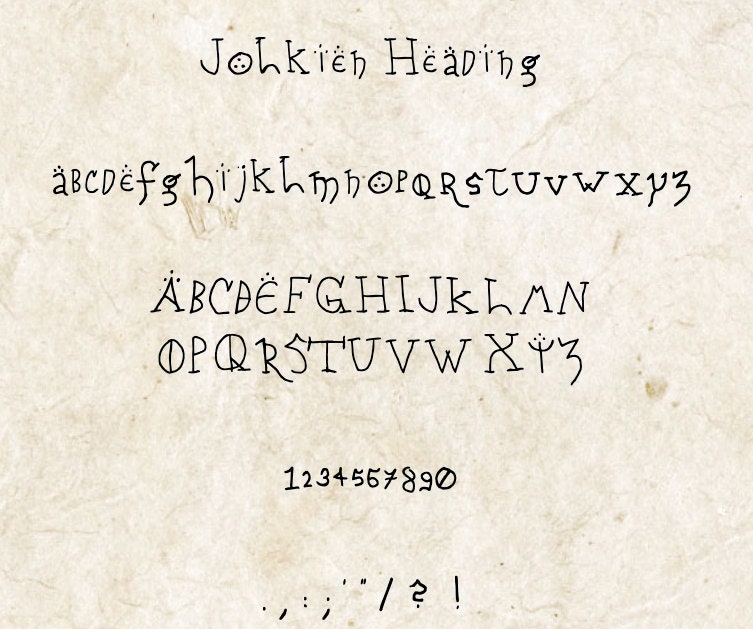 Jolkien Heading
abcdefghijklmnopqrstuvwxyz
ABCDEFGHIJKLMN
OPQRSTUVWXYZ
1234567890
. , : ; ' " / ? !